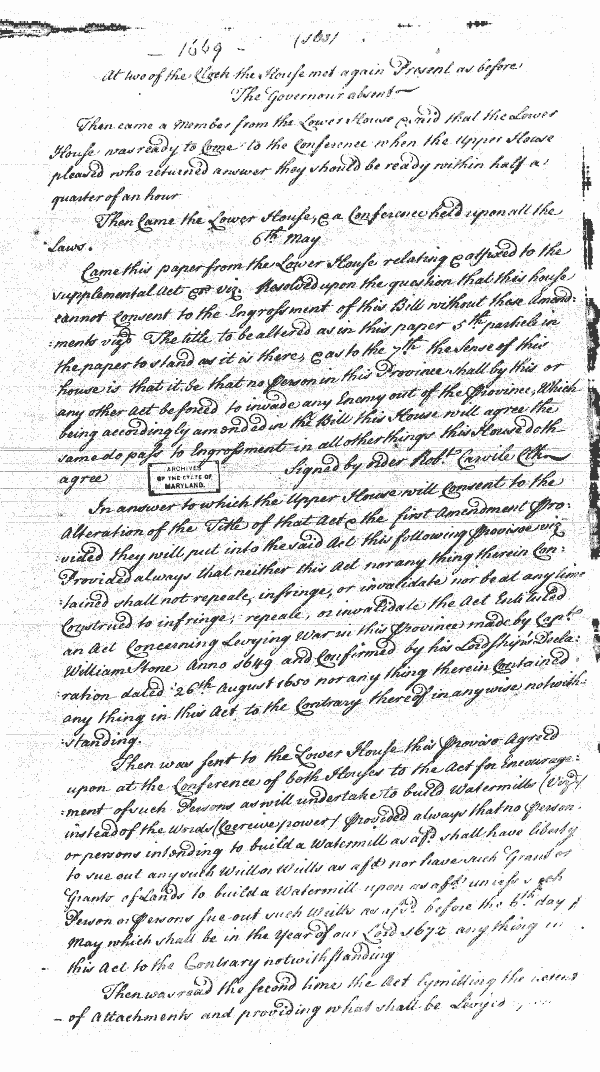 - 1669 -
(183)
At two of the Clock the House met again Present as before
The Governour absent
Then came a Member from the Lower House & said that the Lower
House was ready to Come to the Conference when the Upper House
pleased who returned answer they should be ready within half a
quarter of an hour
Then Came the Lower House, & a Conference held upon all the
Laws.
6th May
Came this paper from the Lower House relating & affixed to the
supplemental Act viz. Resolved upon the question that this house
cannot Consent to the Engrossment of this Bill without these Amend:
:ments vizt The title to be altered as in this paper 5th particle in
the paper to stand as it is there, & as to the 7th the Sense of this
house is that it be that no Person in this Province shall by this or
any other Act be forced to invade any Enemy out of the Province, Which
being accordingly amended in the Bill this House will agree the
same do pass to Engrossment in all other things this House doth
agree
Signed by order Robt Carvile Clk
ARCHIVES
OF THE STATE OF
MARYLAND.
In answer to which the Upper House will Consent to the
Alteration of the Title of that Act & the first Amendment Pro:
vided they will put into the said Act this following Provisoe viz
Provided always that neither this Act nor any thing therein Con:
:tained shall not repeale, infringe, or invalidate nor be at any time
Construed to infringe, repeale, or invalidate the Act Entituled
an Act Concerning Levying War in this Province made by Capt.
William Stone Anno 1649 and Confirmed by his Lordship's Decla:
ration dated 26th August 1650 nor any thing therein Contained
any thing in this Act to the Contrary thereof in any wise notwith:
:standing.
Then was sent to the Lower House this Proviso Agreed
upon at the Conference of both Houses to the Act for Encourage:
:ment of such Persons as will undertake to build Watermills (Vizt)
instead of the Words (Coercive power) Provided always that no Person
or persons intending to build a Watermill as afd. shall have liberty
to sue out any such Writt or Writts as afd nor have such Grant or
Grants of Lands to build a Watermill upon as afd unless such
Person or Persons sue out such Writts as afd. before the 6th day
May which shall be in the Year of our Lord 1672 any thing in
this Act to the Contrary notwithstanding
Then was read the second time the Act lymitting the
- of Attachments and providing what shall be Levyed